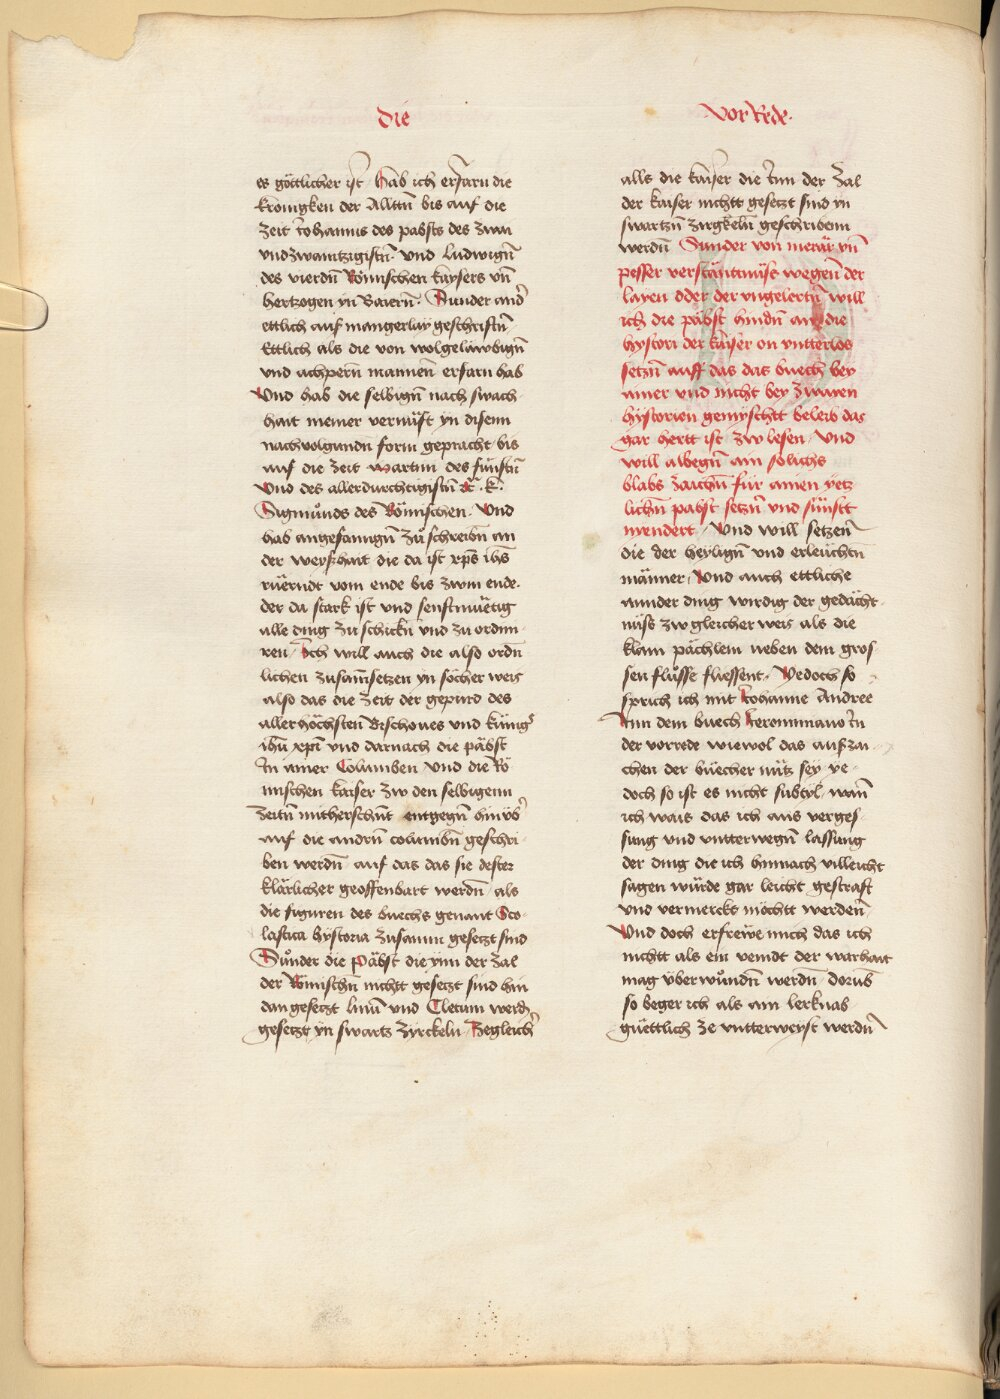 Die
VorRede.
es göttlicher ist / Hab ich erfarn die
kronigken der Allttn̄ bis auf die
zeit Johannis des pabsts des zwai
vndzwaintzigistn̄ . vnd Ludwign̄
des vierdn̄ Römischen kaysers vn̄
hertzogen yn Baiern̄ . Sunder and'
ettlich auf mangerlay geschriftn̄
Ettlich als die von wolgelawbign̄
vnd achpern̄ mannen̄ erfarn hab
Vnd hab die selbign̄ nach swach
hait meiner vernüft yn disem
nachvolgundn̄ form gepracht bis
auf die zeit Martini des fünftn̄
Vnd des allerdurchtigistn̄ .K.
Sigmůnds des Römischen . Vnd
hab angefanngn̄ zů schreibn̄ an
der weyßhait die da ist xp̄s ih̄s
rüerndt vom ende bis zwm ende .
der da stark ist vnd senftmüetig
alle ding zu schickn̄ vnd zu ordnn
ren / Ich will auch die also ordn̄
lichen zusam̄setzen yn söcher weis
also das die zeit der gepurd des
allerhöchsten̄ Bischoues vnd künigs
ih̄u xp̄i vnd darnach die päbst
In ainer Columben Vnd die Rö
mischen kaiser zw den selbigenn
zeitn̄ mitherschn̄t entgegn̄ hinüb'
auf die andrn̄ columbn̄ geschri
ben werdn̄ auf das das sie dester
klärlicher geoffenbart werdn̄ als
die figuren des buechs genant Sco
lastica hystoria zusamm gesetzt sind
Sůnder die päbst die ynn der zal
der Römischn̄ nichtt gesetzt sind hin
dan gesetzt linū vnd Cletum werdn
gesetzt yn swartz zyrckeln / zegleich'
alls die kaiser die Inn der zal
der kaiser nichtt gesetzt sind yn
swartzn̄ zirgkeln̄ geschribenn
werdn̄ Sunder von merär vn̄
pesser verstäntnüss wegen̄ der
layen oder der vngelertn̄ will
ich die päbst hindn̄ an die
hystori der kaiser on vntterlos
setzn̄ auff das das buech bey
ainer vnd nicht bey zwayen
hystorien gemyschtt beleib das
gar hertt ist zw lesen / Vnd
will albegn̄ ain solichs
blabs zaichn̄ für ainen yetz
lichn̄ pabst setzn̄ vnd sünstt
nyendert / Vnd will setzen̄
die der heylign̄ vnd erleuchtn̄
männer / Vnd auch ettliche
wunder ding wirdig der gedächt
nüss zw gleicher weis als die
klain pächlein neben dem gros
sen flůsse fliessent / Yedoch so
sprich ich mit Johanne Andree
Inn dem buech Jeronimiano In
der vorrede wiewol das aufzai
chen der büecher nütz sey ye
doch so ist es nicht subtyl / wan̄
ich wais das ich aus verges
sung vnd vntterwegn̄ lassung
der ding die ich hinnach villeicht
sagen würde gar leicht gestraft
vnd vermerckt möchtt werden̄
Vnd doch erfreẅe mich das ich
nichtt als ein veindt der warhait
mag überwůndn̄ werdn̄ dorūb
so beger ich als ain lerknab
güettlich ze vntterweyst werdn̄